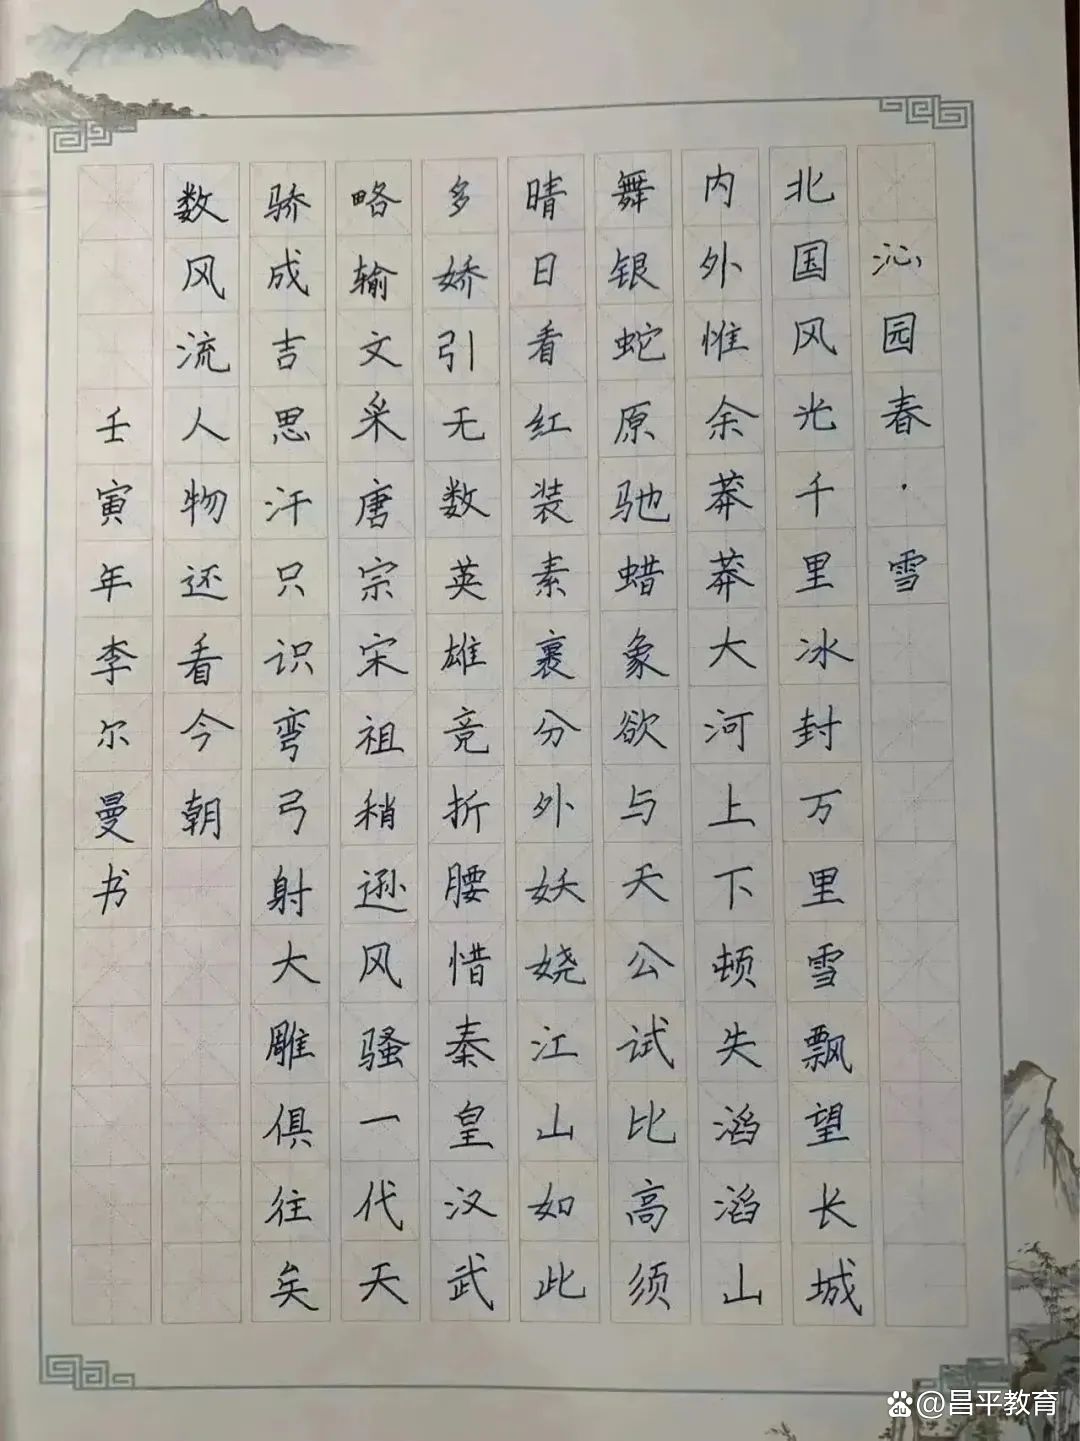 沁园春·雪
北国风光千里冰封万里雪飘望长城
内外惟余莽莽大河上下顿失滔滔山
舞银蛇原驰蜡象欲与天公试比高须
晴日看红装素裹分外妖娆江山如此
多娇引无数英雄竞折腰惜秦皇汉武
略输文采唐宗宋祖稍逊风骚一代天
骄成吉思汗只识弯弓射大雕俱往矣
数风流人物还看今朝
壬寅年李尔曼书
@昌平教育